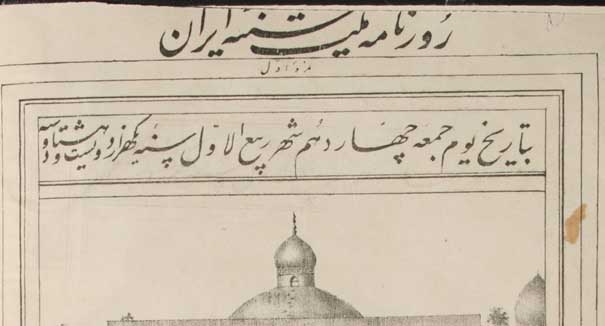 روزنامه ملت سنیه ایران
نمره اول
بتاریخ یوم جمعه چهاردهم شهر ربیع الاول سنه یکهزار و دویست و هشتاد و سه